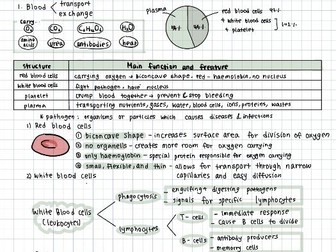 1. Blood
transport
exchange
O₂
CO₂
C₆H₁₂O₆
H₂O
amino acids
urea
antibodies
heat
plasma
red blood cells
white blood cells
platelet
Structure
Main function and freature
red blood cells
carrying oxygen → biconcave shape, red - haemoglobin, no nucleus
white blood cells
fight pathogen, have nucleus
platelet
clump blood together → prevent & stop bleeding
plasma
transporting nutrients, gases, water, blood cells, ions, proteins, wastes
pathogen: organisms or particles which causes diseases & infections
1) Red blood cells
① biconcave shape - increases surface area for division of oxygen
② no organells - creates more room for oxygen carrying
③ only haemoglobin - special protein responsible for oxygen carrying
④ small, flexible, and thin - allows for transport through narrow
capillaries and easy diffusion
2) White blood cells
White Blood Cells
(leukocytes)
phagocytosis
engulfing & digesting pathogens
signals for specific lymphocytes
lymphocytes
T - cells
immediate response
cause B cells to divide
B - cells
antibody producers
memory cells